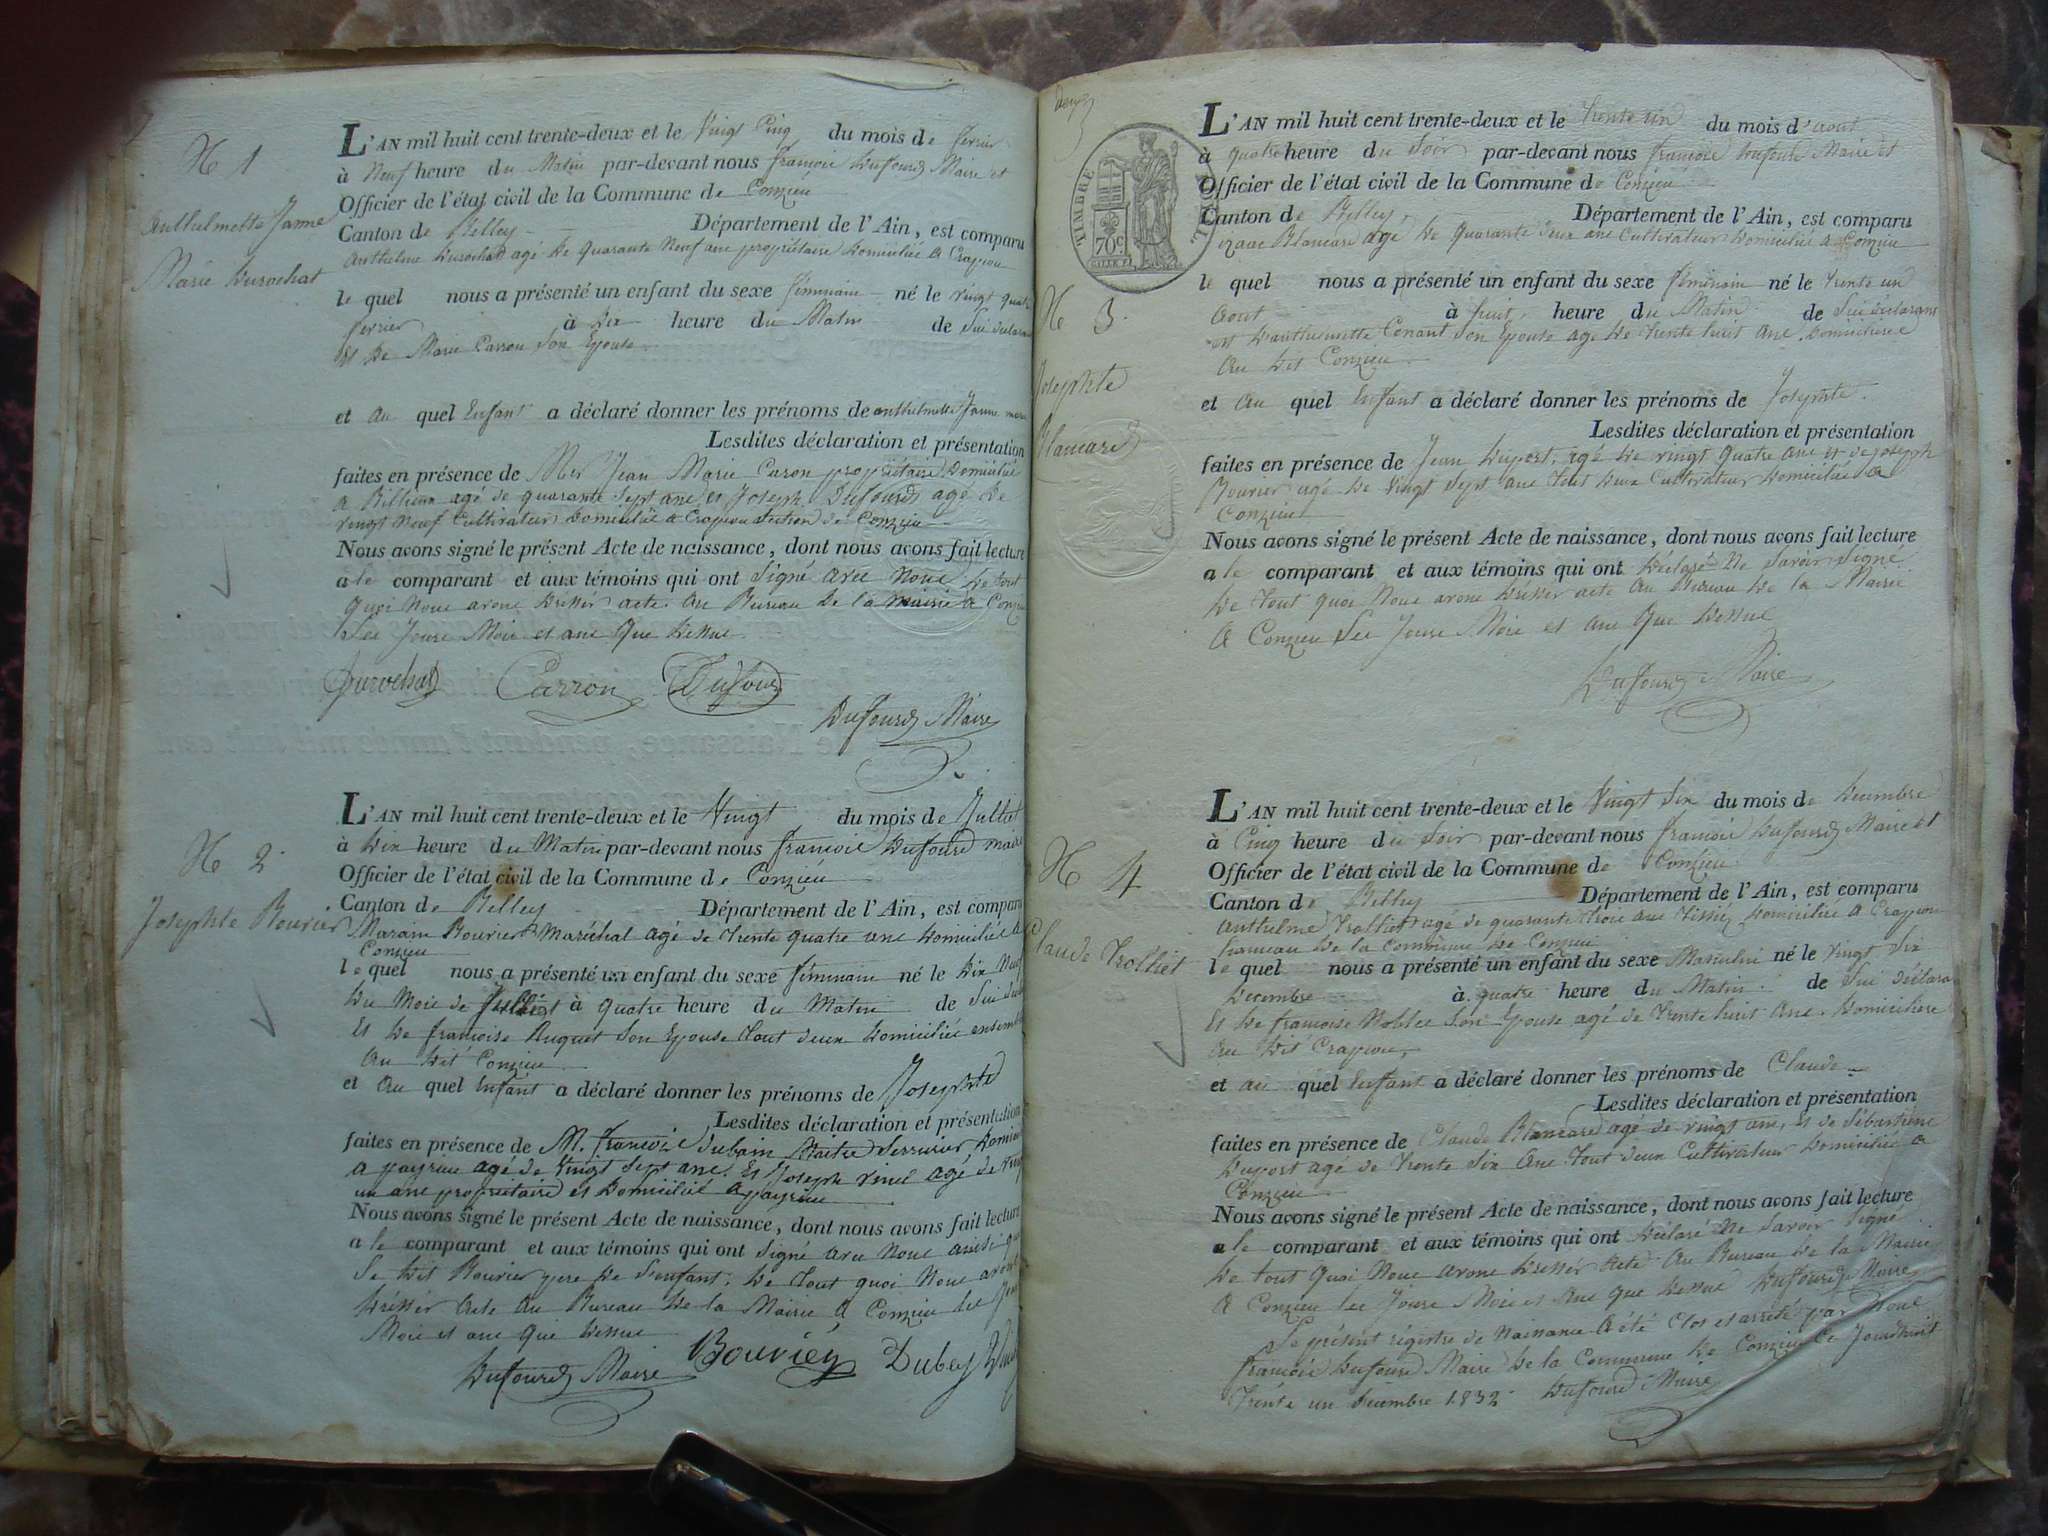 N 1
Anthelmette Janne
Marie Durochat
L'AN mil huit cent trente-deux et le Vingt Cinq du mois de fevrier
à Neuf heure du Matin par-devant nous françois Dufourd Maire et
Officier de l'état civil de la Commune de Conzieu
Canton de Belley Département de l'Ain, est comparu
Anthelme Durochat agé de quarante Neuf ans propriétaire Domicilié a Crapeou
le quel nous a présenté un enfant du sexe féminain né le vingt quatre
fevrier à dix heure du Matin de Lui déclarant
Et de Marie Carron Son Epouse
et au quel Enfant a déclaré donner les prénoms de anthelmette Janne marie
Lesdites déclaration et présentation
faites en présence de Jean Marie Caron propriétaire Domicilié
a agé de quarante Sept ans et Joseph Dufourd agé de
vingt Neuf Cultivateur Domicilié a Crapeou Section de Conzieu
Nous avons signé le présent Acte de naissance, dont nous avons fait lecture
a le comparant et aux témoins qui ont Signé avec Nous de tout
quoi Nous avons dressér acte au Bureau de la Mairie a Conzieu
Les Jours Mois et ans Que dessus
Durochat Carron Dufour
Dufourd Maire
N 2
Josephte Bouvier
L'AN mil huit cent trente-deux et le Vingt du mois de Julliet
à dix heure du Matin par-devant nous francois Dufourd maire
Officier de l'état civil de la Commune de Conzieu
Canton de Belley Département de l'Ain, est comparu
Bouvier Maréchal agé de trente quatre ans Domicilié a
Conzieu
le quel nous a présenté un enfant du sexe féminain né le dix Neuf
du Mois de Julliet à quatre heure du Matin de Lui
Et de françoise Huguet Son Epouse tout deux Domicilié ensemble
au dit Conzieu
et au quel Enfant a déclaré donner les prénoms de Josephte
Lesdites déclaration et présentation
faites en présence de M. francois Maitre Serrurier
a peyrieu agé de vingt Sept ans Et Joseph agé de vingt
un ans propriétaire et Domicilié a peyrieu
Nous avons signé le présent Acte de naissance, dont nous avons fait lecture
a le comparant et aux témoins qui ont Signé avec Nous ainsi que
Le dit Bouvier pere de L'enfant, de tout quoi Nous avons
dréssér acte au Bureau de la Mairie a Conzieu les Jour
Mois et ans que dessus
Dufourd Maire Bouvier
N 3
Josephte
Blancard
TIMBRE
70c
L'AN mil huit cent trente-deux et le trente un du mois d'aout
à quatre heure du Soir par-devant nous francois Dufourd Maire et
Officier de l'état civil de la Commune de Conzieu
Canton de Belley Département de l'Ain, est comparu
izaac Blancard agé de quarante deux ans Cultivateur Domicilié a Conzieu
le quel nous a présenté un enfant du sexe féminain né le trente un
Aout à huit heure du Matin de Lui déclarant
et d'anthelmette Conant Son Epouse agé de trente huit ans Domiciliée
au dit Conzieu
et au quel Enfant a déclaré donner les prénoms de Josephte.
Lesdites déclaration et présentation
faites en présence de Jean Duport, agé de vingt quatre ans et de Joseph
Bouvier agé de vingt Sept ans tout deux Cultivateur Domicilié a
Conzieu
Nous avons signé le présent Acte de naissance, dont nous avons fait lecture
a le comparant et aux témoins qui ont Déclaré Ne Savoir Signé
de tout quoi Nous avons dressér acte au Bureau de la Mairie
a Conzieu Les Jours Mois et ans Que dessus
Dufourd Maire
N 4
Claude Trolliet
L'AN mil huit cent trente-deux et le Vingt Six du mois de Décembre
à Cinq heure du Soir par-devant nous francois Dufourd Maire et
Officier de l'état civil de la Commune de Conzieu
Canton de Belley Département de l'Ain, est comparu
Anthelme Trolliet agé de quarante trois ans Domicilié a Crapeou
hameau de la Commune de Conzieu
le quel nous a présenté un enfant du sexe Masculin né le vingt Six
Decembre à quatre heure du Matin de Lui déclarant
Et de francoise Son Epouse agé de trente huit ans Domiciliée
au dit Crapeou,
et au quel Enfant a déclaré donner les prénoms de Claude
Lesdites déclaration et présentation
faites en présence de Claude Blancard agé de vingt ans, Et de Sébastiene
Duport agé de trente Six ans tout deux Cultivateur Domicilié a
Conzieu
Nous avons signé le présent Acte de naissance, dont nous avons fait lecture
a le comparant et aux témoins qui ont Déclaré Ne Savoir Signé
de tout Quoi Nous avons dressér Acte au Bureau de la Mairie
a Conzieu les Jours Mois et ans que dessus Dufourd Maire
Le présent régistre de Naissance a été Clos et arrêté par Nous
francois Dufourd Maire de la Commune de Conzieu Ce Jourdhuit
Trente un decembre 1832 Dufourd Maire